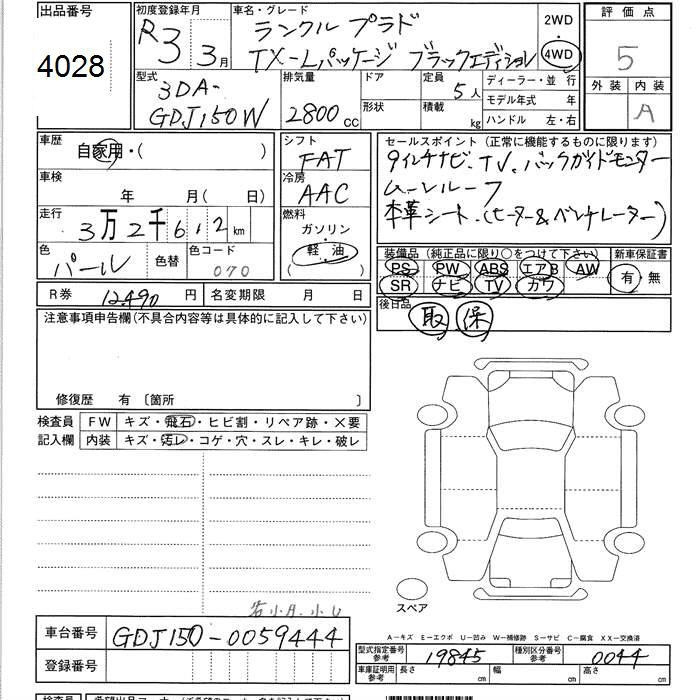 出品番号
4028
初度登録年月
R3 3月
車名・グレード
ランクル プラド
TX-Lパッケージ ブラックエディション
2WD
・
4WD
評価点
5
外装 内装
A
型式
3DA-
GDJ150W
排気量
2800cc
ドア
形状
定員
5人
積載
kg
ディーラー・並行
モデル年式 年
ハンドル 左・右
車歴
自家用・( )
車検
年 月( 日)
走行
3万2千612km
色
パール
色替
色コード
070
シフト
FAT
冷房
AAC
燃料
ガソリン
軽・油
( )
セールスポイント (正常に機能するものに限ります)
9インチナビ、TV、バックガイドモニター
ムーンルーフ
本革シート・(ヒーター&ベンチレーター)
装備品 (純正品に限り○をつけて下さい)
PS PW ABS エアB AW
SR ナビ TV カワ
新車保証書
有・無
R券 12,490円
名変期限 月 日
後日品
取 保
注意事項申告欄(不具合内容等は具体的に記入して下さい)
修復歴 有 〔箇所 〕
検査員
記入欄
FW キズ・飛石・ヒビ割・リペア跡・×要
内装 キズ・汚レ・コゲ・穴・スレ・キレ・破レ
スペア
車台番号 GDJ150-0059444
登録番号
A－キズ E－エクボ U－凹み W－補修跡 S－サビ C－腐食 XX－交換済
型式指定番号
参考
19845
種別区分番号
参考
0044
車庫証明用
参考
長さ cm 幅 cm 高さ cm